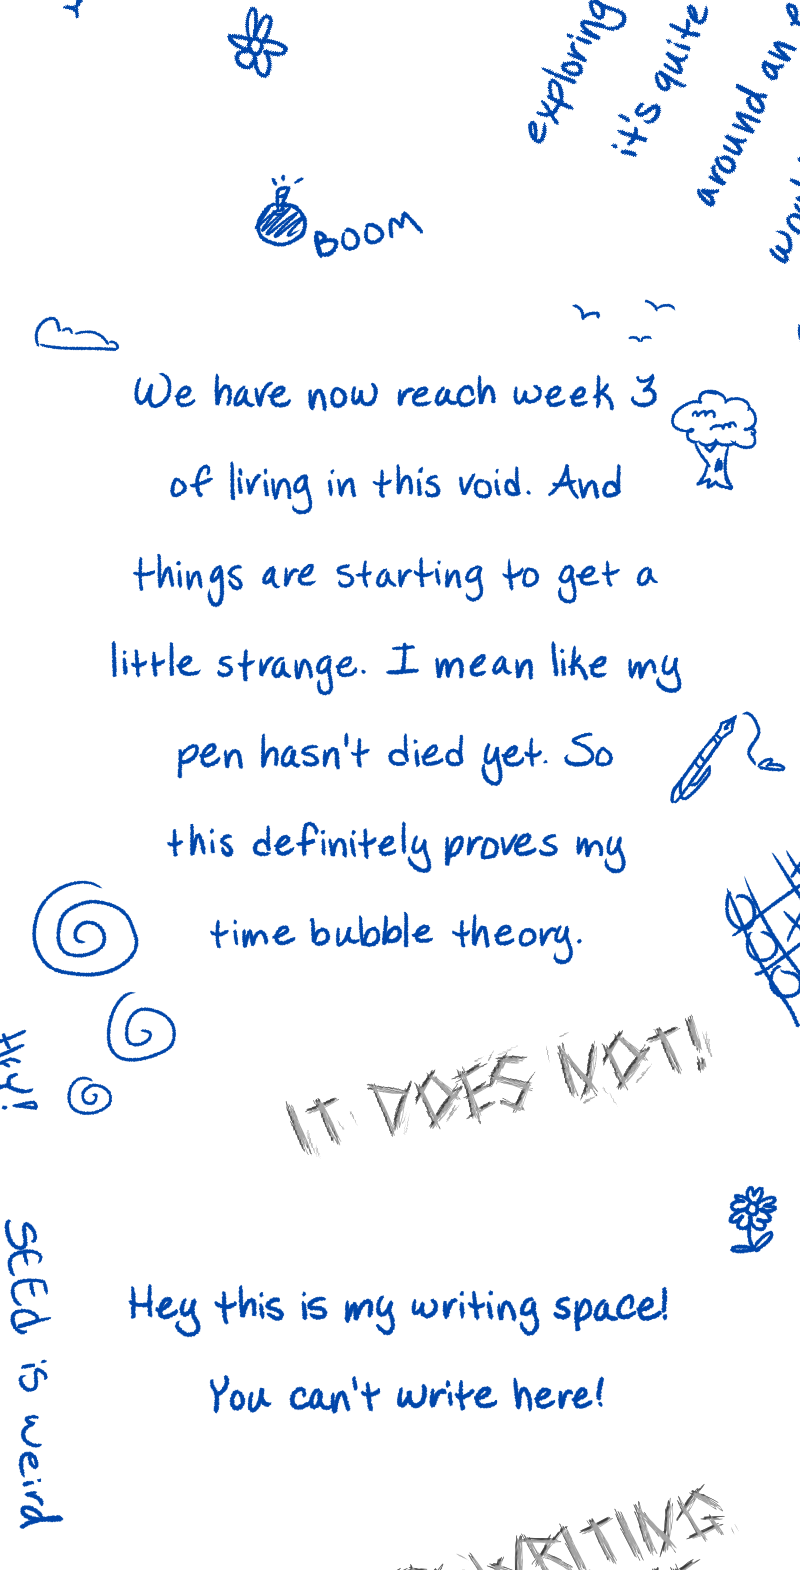 exploring
it's quite
around an
BOOM
We have now reach week 3
of living in this void. And
things are starting to get a
little strange. I mean like my
pen hasn't died yet. So
this definitely proves my
time bubble theory.
Hey!
IT DOES NOT!
SEEd is weird
Hey this is my writing space!
You can't write here!
WRITING